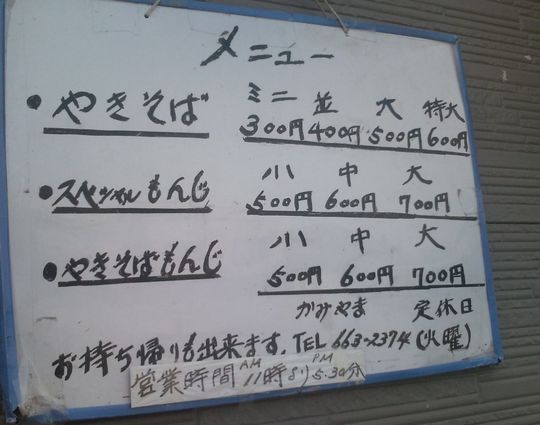 メニュー
ミニ 並 大 特大
・やきそば 300円 400円 500円 600円
小 中 大
・スペシャルもんじ 500円 600円 700円
小 中 大
・やきそばもんじ 500円 600円 700円
かみやま 定休日
お持ち帰りも出来ます。TEL 663-2374 (火曜)
営業時間 AM 11時より PM 5.30分